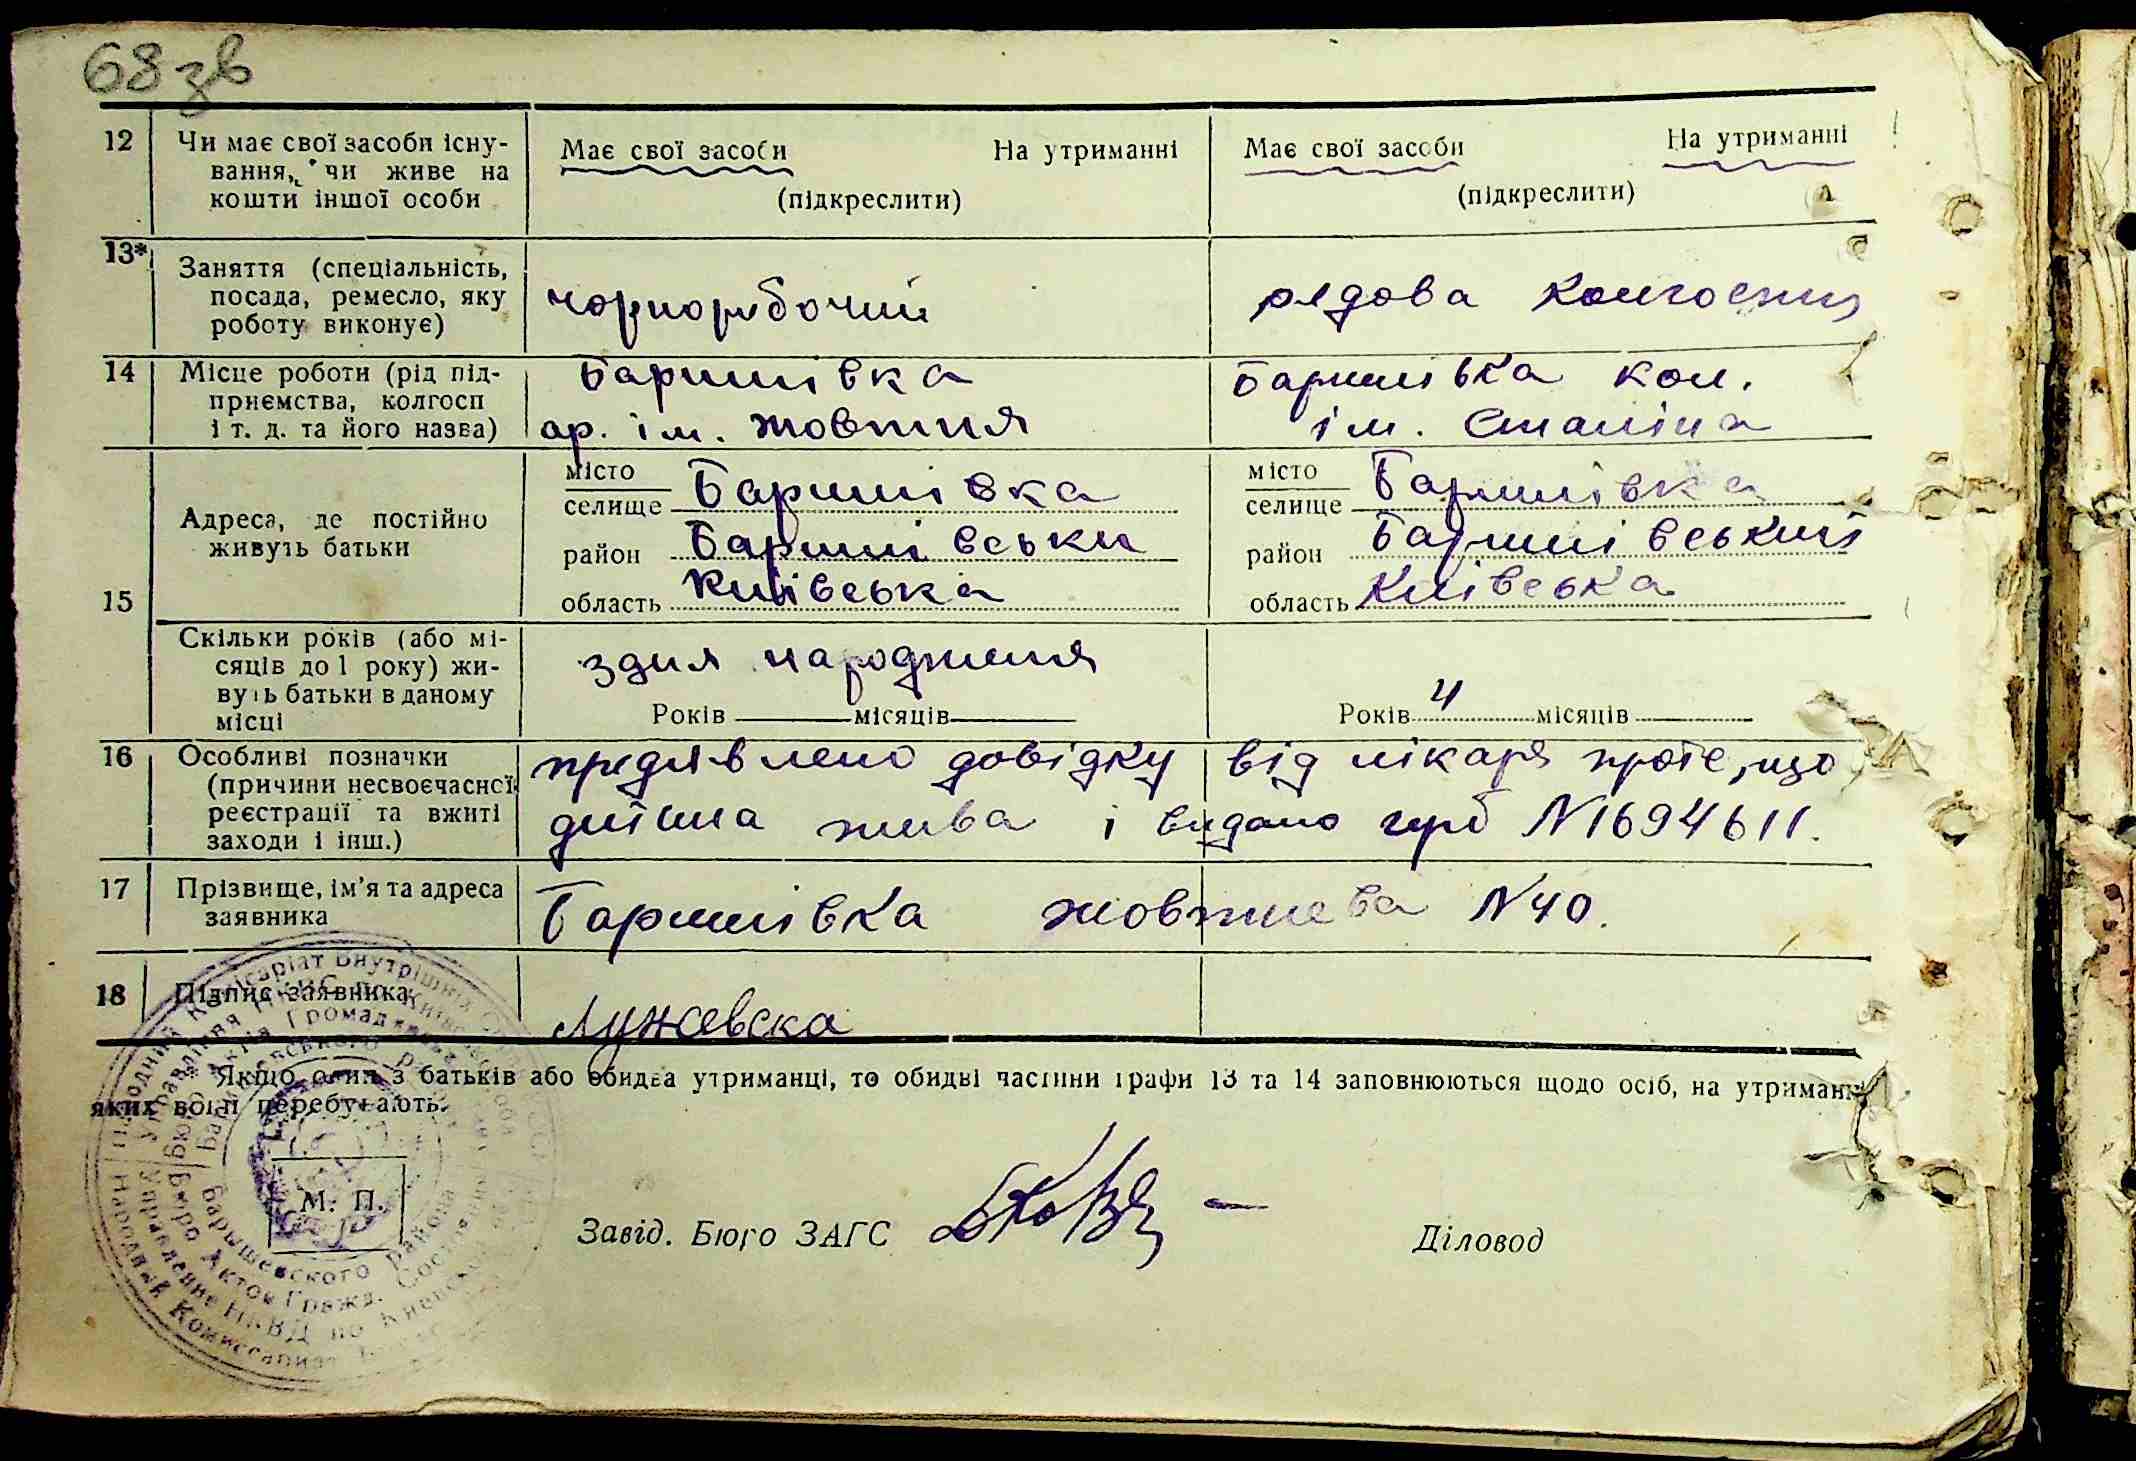 68 зв
12 Чи має свої засоби існу- Має свої засоби На утриманні Має свої засоби На утриманні
вання, чи живе на
кошти іншої особи (підкреслити) (підкреслити)
13* Заняття (спеціальність,
посада, ремесло, яку чорноробочий рядова колгоспниця
роботу виконує)
14 Місце роботи (рід під- Баришівка Баришівка кол.
приємства, колгосп
і т. д. та його назва) ар. ім. Жовтня ім. Сталіна
місто місто
селище Баришівка селище Баришівка
Адреса, де постійно
живуть батьки район Баришівськи район Баришівський
15 область Київська область Київська
Скільки років (або мі-
сяців до 1 року) жи- здня народження
вуть батьки в даному
місці Років місяців Років 4 місяців
16 Особливі позначки предявлено довідку від лікаря проте, що
(причини несвоєчасної
реєстрації та вжиті дитина жива і видано герб N1694611.
заходи і інш.)
17 Прізвище, ім'я та адреса
заявника Баришівка жовтнева N40.
18 Підпис заявника
Лужевска
* Якщо один з батьків або обидва утриманці, то обидві частини графи 13 та 14 заповнюються щодо осіб, на утриманні
яких вони перебувають.
М. П.
Завід. Бюро ЗАГС Діловод
Народний Комісаріат Внутрішніх Справ
Управління НКВС по Київській
Бюро Актів Громад
Баришевського района
Бюро Актов Гражд. Состояния
Управление НКВД по Киевской
Народный Комиссариат